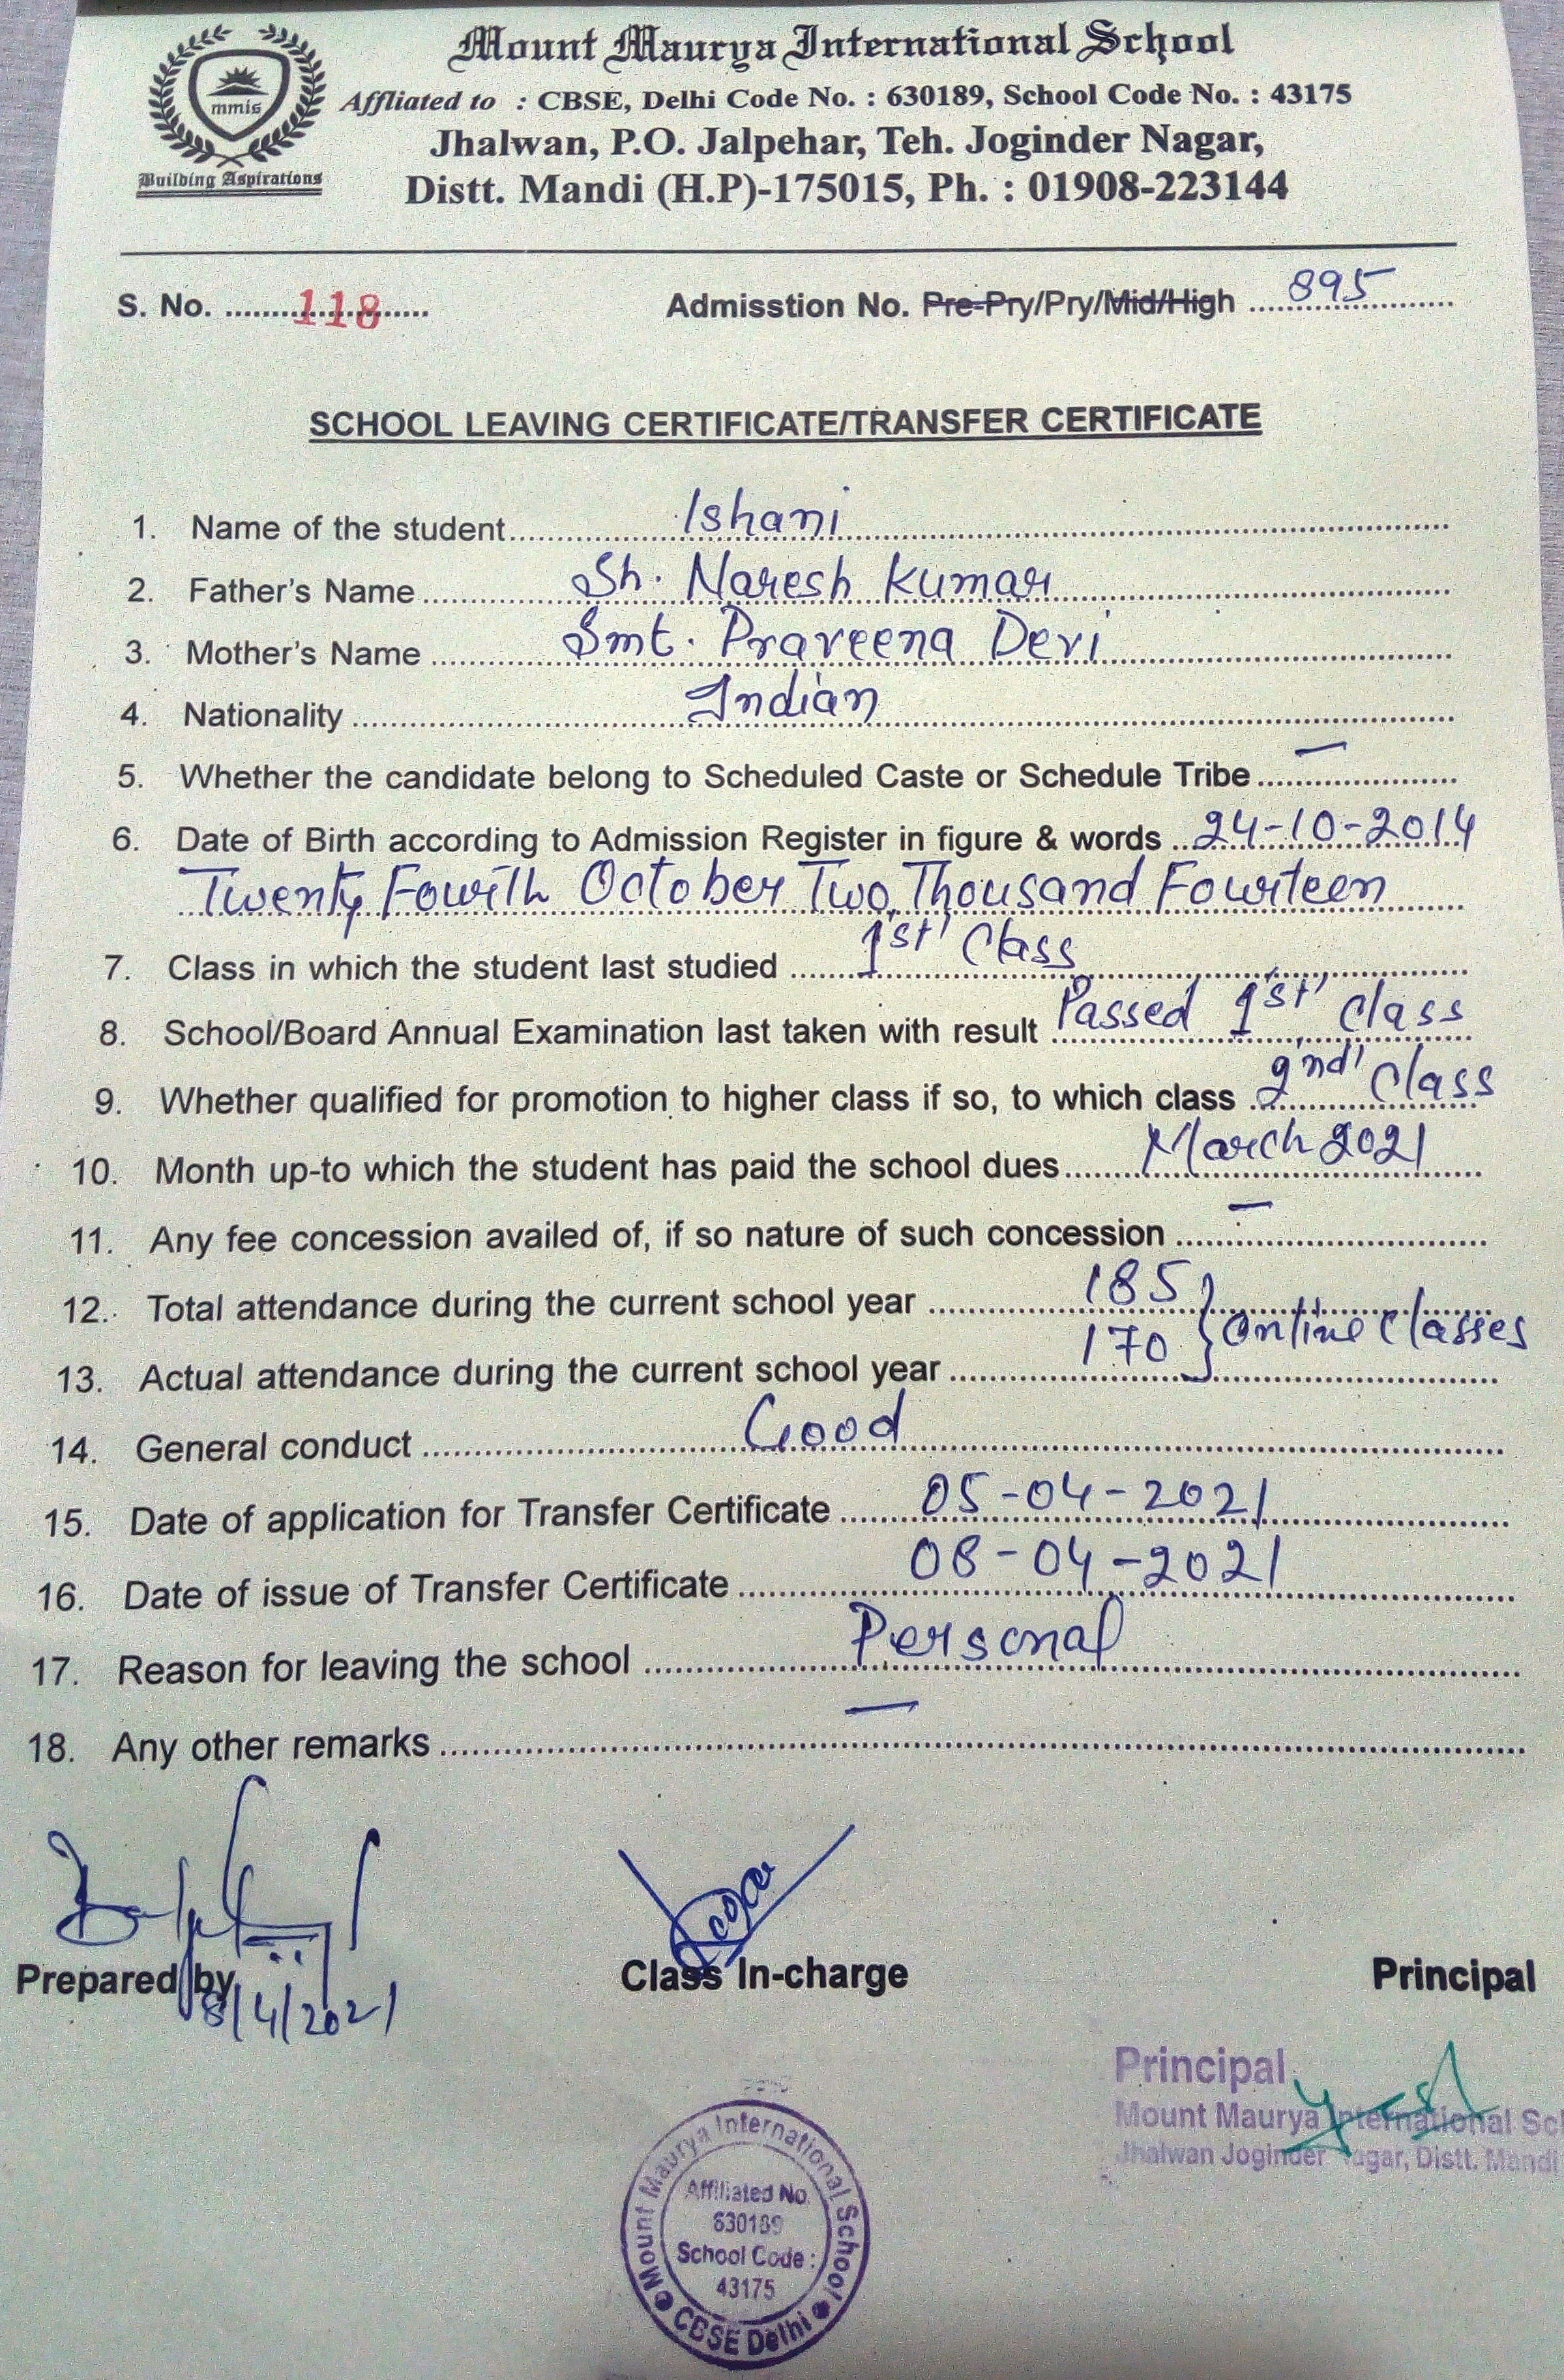 Mount Maurya International School
mmis
Building Aspirations
Affliated to : CBSE, Delhi Code No. : 630189, School Code No. : 43175
Jhalwan, P.O. Jalpehar, Teh. Joginder Nagar,
Distt. Mandi (H.P)-175015, Ph. : 01908-223144
S. No. 118 Admisstion No. Pre-Pry/Pry/Mid/High 895
SCHOOL LEAVING CERTIFICATE/TRANSFER CERTIFICATE
1. Name of the student Ishani
2. Father's Name Sh. Naresh Kumar
3. Mother's Name Smt. Praveena Devi
4. Nationality Indian
5. Whether the candidate belong to Scheduled Caste or Schedule Tribe —
6. Date of Birth according to Admission Register in figure & words 24-10-2014
Twenty Fourth October Two Thousand Fourteen
7. Class in which the student last studied 1st Class
8. School/Board Annual Examination last taken with result Passed 1st Class
9. Whether qualified for promotion to higher class if so, to which class 2nd Class
10. Month up-to which the student has paid the school dues March 2021
11. Any fee concession availed of, if so nature of such concession —
12. Total attendance during the current school year 185 } Online Classes
13. Actual attendance during the current school year 170
14. General conduct Good
15. Date of application for Transfer Certificate 05-04-2021
16. Date of issue of Transfer Certificate 08-04-2021
17. Reason for leaving the school Personal
18. Any other remarks —
Prepared by Class In-charge Principal
8/4/2021
Principal
Mount Maurya International Sch
Jhalwan Joginder Nagar, Distt. Mandi
Mount Maurya International School
Affiliated No.
630189
School Code :
43175
CBSE Delhi